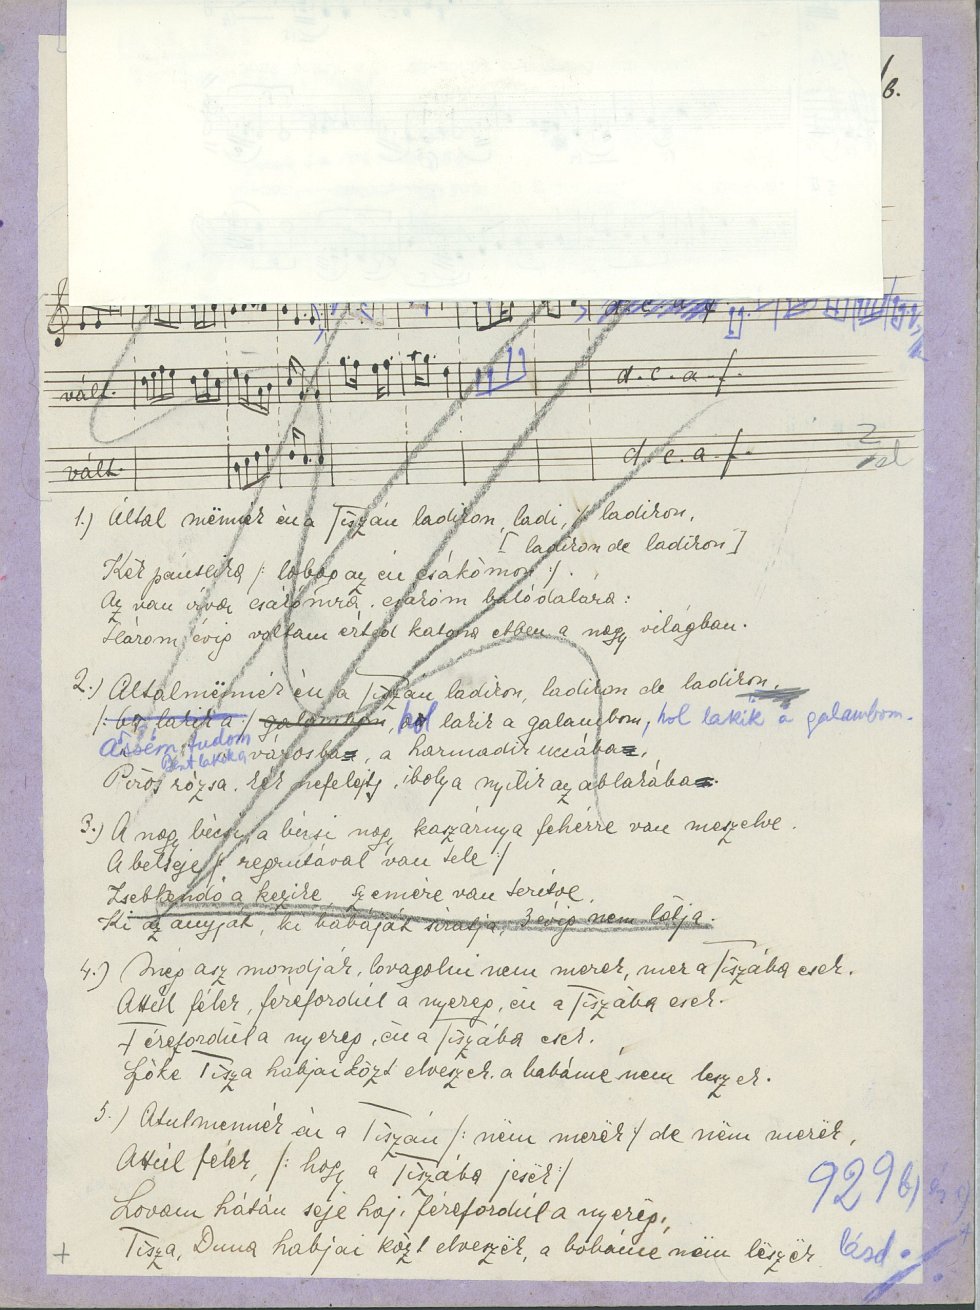 b.
d. c. a. f.
vált. d. c. a. f.
vált. d. c. a. f. 2
1.) Által mënnék én a Tiszán ladikon, ladi, /: ladikon,
[ ladikon de ladikon ]
Két pántlika /: lobog az én csákómon :/ .
Az van írva csákómra, csáróm
Három évig voltam érted katona ebben a nagy világban.
2.) Általmënnék én a Tiszán ladikon, ladikon de ladikon,
/: ba lakik a :/ galambom, hol lakik a galambom, hol lakik a galambom.
Asse tudom
városba, a harmadik uccába,
Piros rózsa, kék nefelejts, ibolya nyílik az ablakába.
3.) A nagy bécsi, a bécsi nagy kaszárnya fehérre van meszelve.
A belseje /: regrutával van tele :/
Zsebkendő a kezike, szemére van terítve,
Ki az anyját, ki babáját siratja, 3 évig nem látja.
4.) Még asz mondják, lovagolni nem merek, mer a Tiszába esek.
Attúl félek, félrefordúl a nyereg, én a Tiszába esek.
Félrefordúl a nyereg, én a Tiszába esek.
Szőke Tisza habjai közt elveszek, a babámé nem leszek.
5.) Átulmennék én a Tiszán /: nëm merëk :/ de nëm merëk,
Attúl félek, /: hogy a Tiszába jesëk :/
Lovam hátán seje haj, félrefordúl a nyereg,
Tisza, Duna habjai közt elveszëk, a babámé nëm lëszëk
929 b)
lásd.